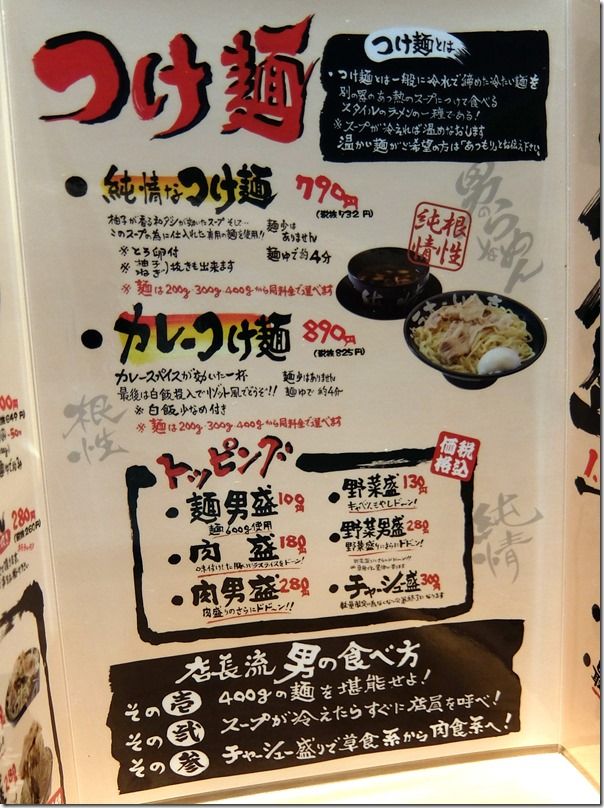 つけ麺
つけ麺とは
・つけ麺とは一般に冷水で締めた冷たい麺を
別の器のあつ熱のスープにつけて食べる
スタイルのラメンの一種である!
※スープが冷えれば温めなおします
温かい麺がご希望の方は「あつもり」とお伝え下さい。
● 純情なつけ麺 790円
(税抜732円)
柚子が香る和ダシが効いたスープ そして…
このスープの為に仕入れた専用の麺を使用!!
麺少は
ありません
※とろ卵付
麺ゆで約4分
※柚子・ねぎ抜きも出来ます
※麺は200g・300g・400gから同料金で選べます
純情
根性
男のらーめん
● カレーつけ麺 890円
(税抜825円)
カレースパイスが効いた一杯
麺少はありません
最後は白飯投入でリゾット風でどうぞ!!
麺ゆで約4分
※白飯少なめ付き
※麺は200g・300g・400gから同料金で選べます
根性
トッピング
税込
価格
・麺男盛 100円
麺600g使用
・肉盛 180円
味付けした豚バラスライスをドーン!
・肉男盛 280円
肉盛りのさらにドドーン!!
・野菜盛 130円
キャベツ、もやしドーン!
・野菜男盛 280
野菜盛りにさらにドドーン!!
・チャーシュー盛 300円
純情
店長流 男の食べ方
その壱 400gの麺を堪能せよ!
その弐 スープが冷えたらすぐに店員を呼べ!
その参 チャーシュー盛りで草食系から肉食系へ!
280円